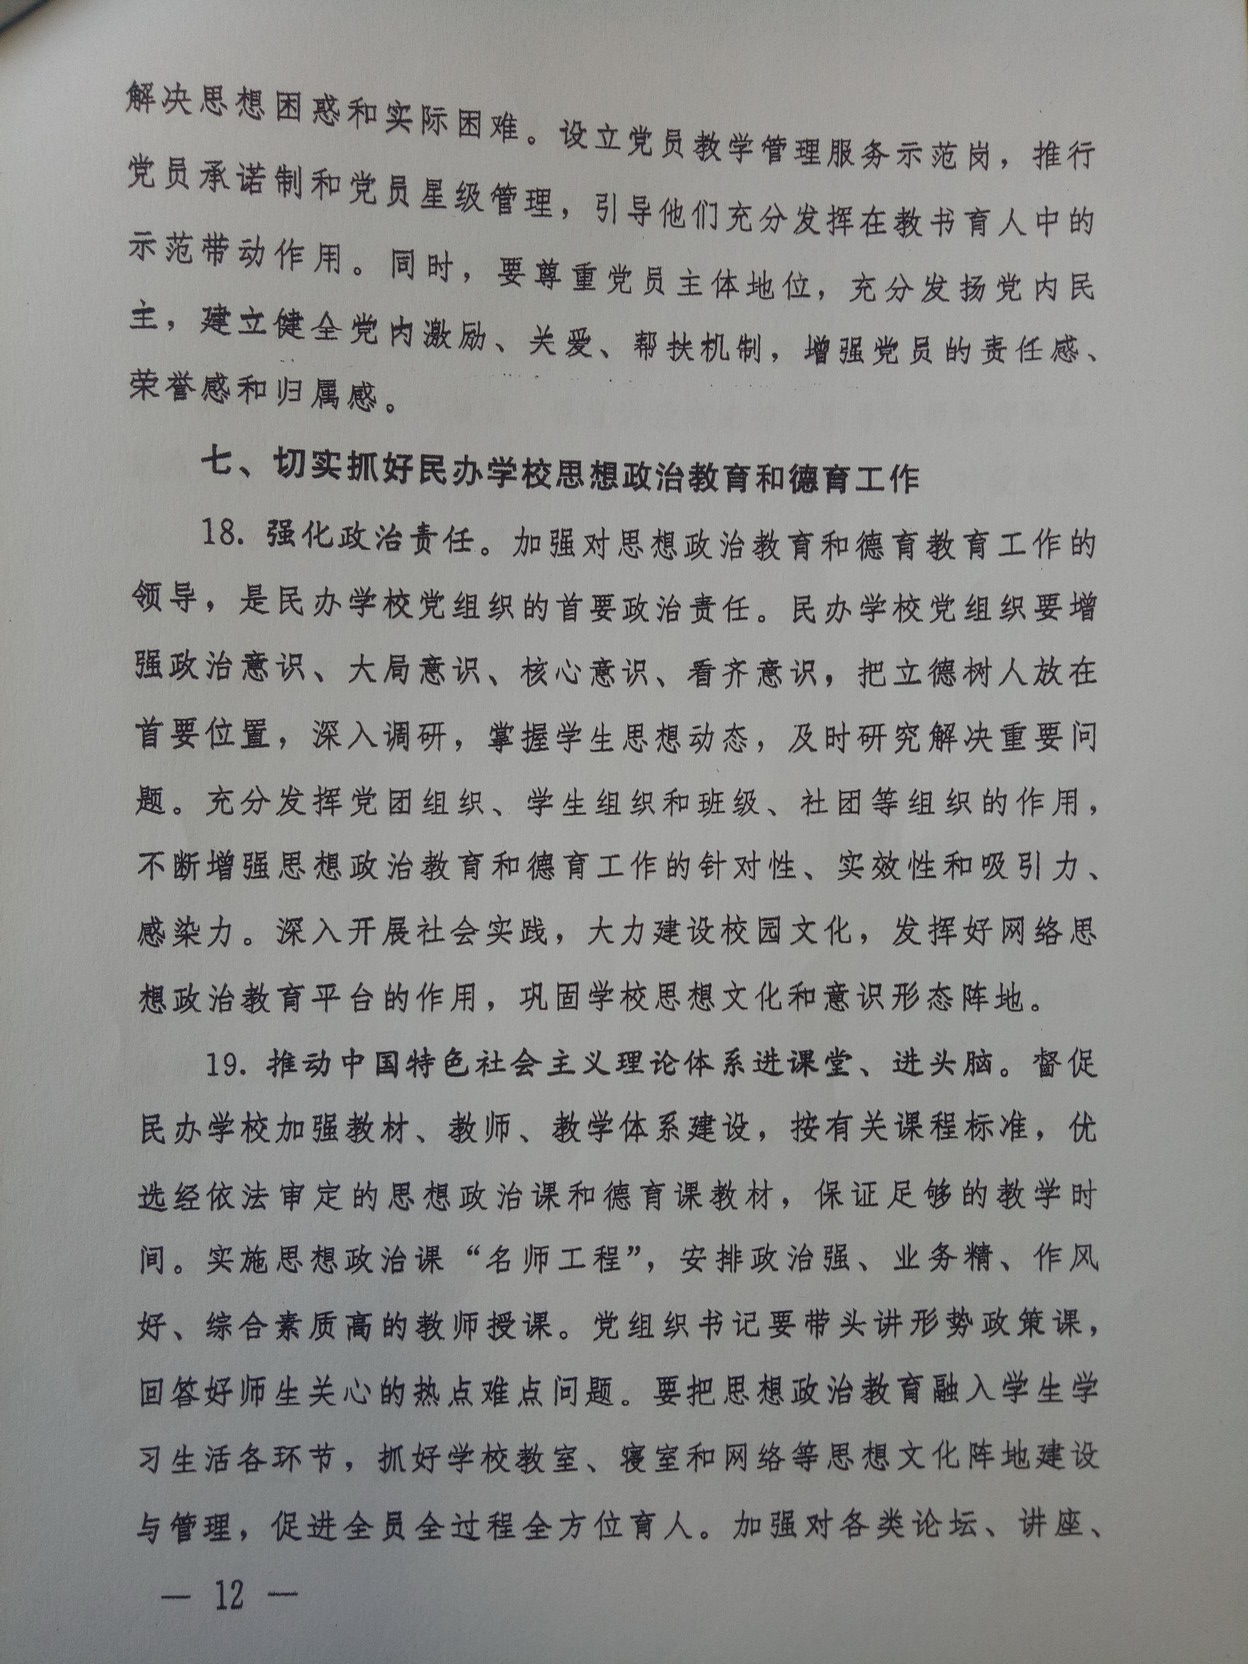 解决思想困惑和实际困难。设立党员教学管理服务示范岗，推行
党员承诺制和党员星级管理，引导他们充分发挥在教书育人中的
示范带动作用。同时，要尊重党员主体地位，充分发扬党内民
主，建立健全党内激励、关爱、帮扶机制，增强党员的责任感、
荣誉感和归属感。
七、切实抓好民办学校思想政治教育和德育工作
18. 强化政治责任。加强对思想政治教育和德育教育工作的
领导，是民办学校党组织的首要政治责任。民办学校党组织要增
强政治意识、大局意识、核心意识、看齐意识，把立德树人放在
首要位置，深入调研，掌握学生思想动态，及时研究解决重要问
题。充分发挥党团组织、学生组织和班级、社团等组织的作用，
不断增强思想政治教育和德育工作的针对性、实效性和吸引力、
感染力。深入开展社会实践，大力建设校园文化，发挥好网络思
想政治教育平台的作用，巩固学校思想文化和意识形态阵地。
19. 推动中国特色社会主义理论体系进课堂、进头脑。督促
民办学校加强教材、教师、教学体系建设，按有关课程标准，优
选经依法审定的思想政治课和德育课教材，保证足够的教学时
间。实施思想政治课“名师工程”，安排政治强、业务精、作风
好、综合素质高的教师授课。党组织书记要带头讲形势政策课，
回答好师生关心的热点难点问题。要把思想政治教育融入学生学
习生活各环节，抓好学校教室、寝室和网络等思想文化阵地建设
与管理，促进全员全过程全方位育人。加强对各类论坛、讲座、
— 12 —